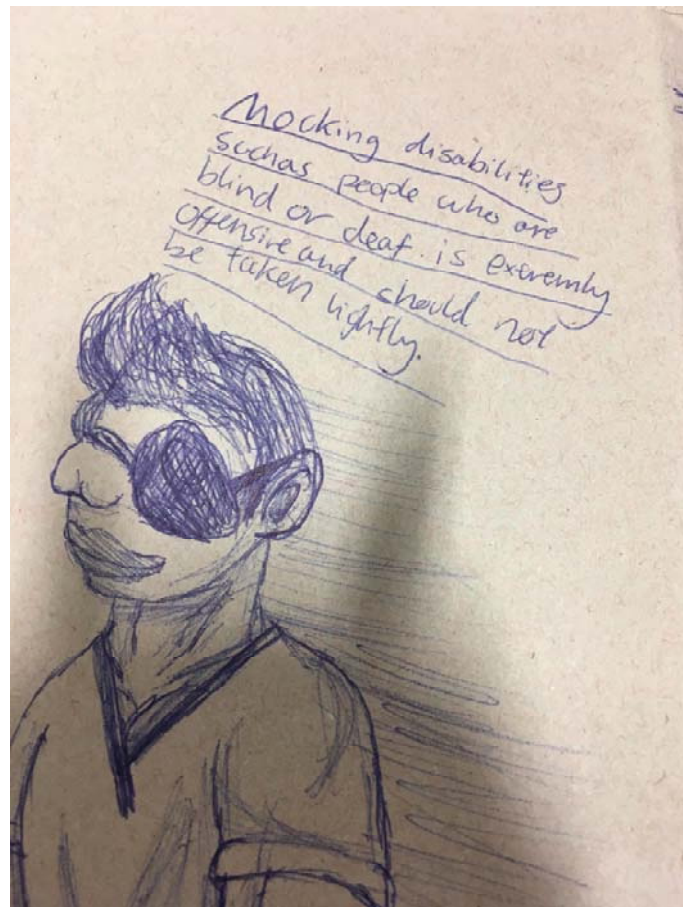 Mocking disabilities
such as people who are
blind or deaf. is exeremly
offensive and should not
be taken lightly.